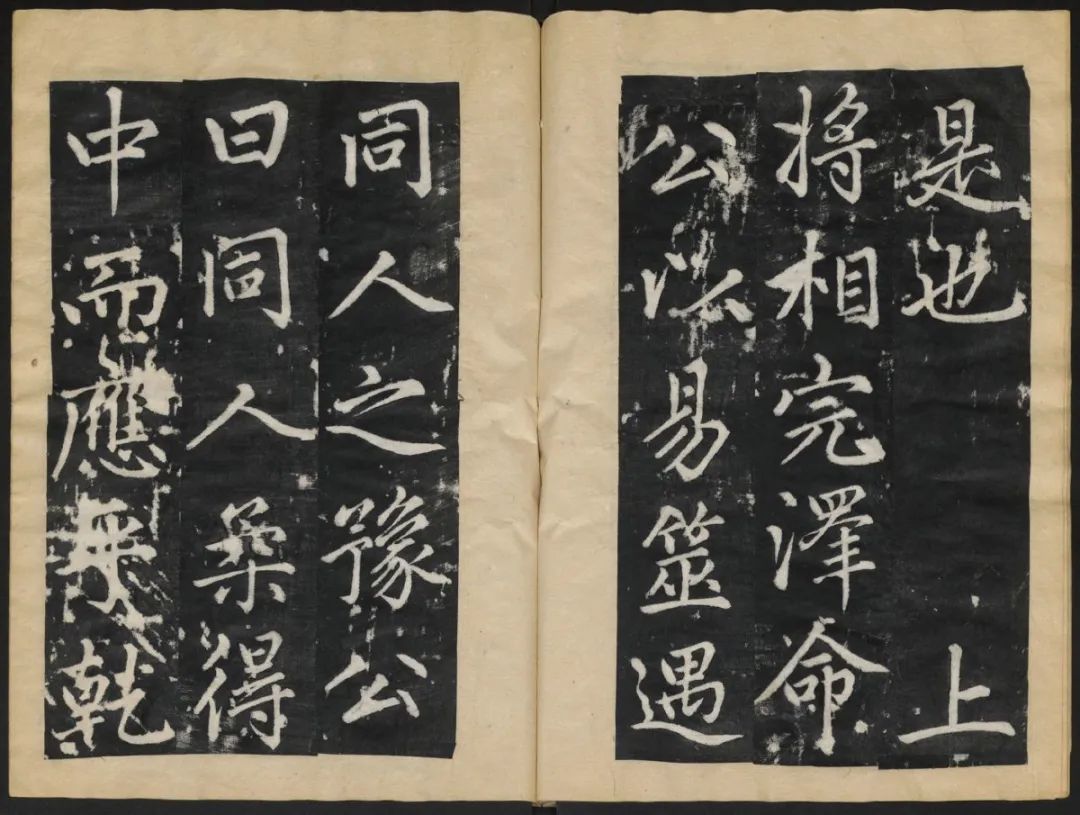 是也 上
將相完澤命
公以易筮遇
同人之豫公
曰同人柔得
中而應乎乾